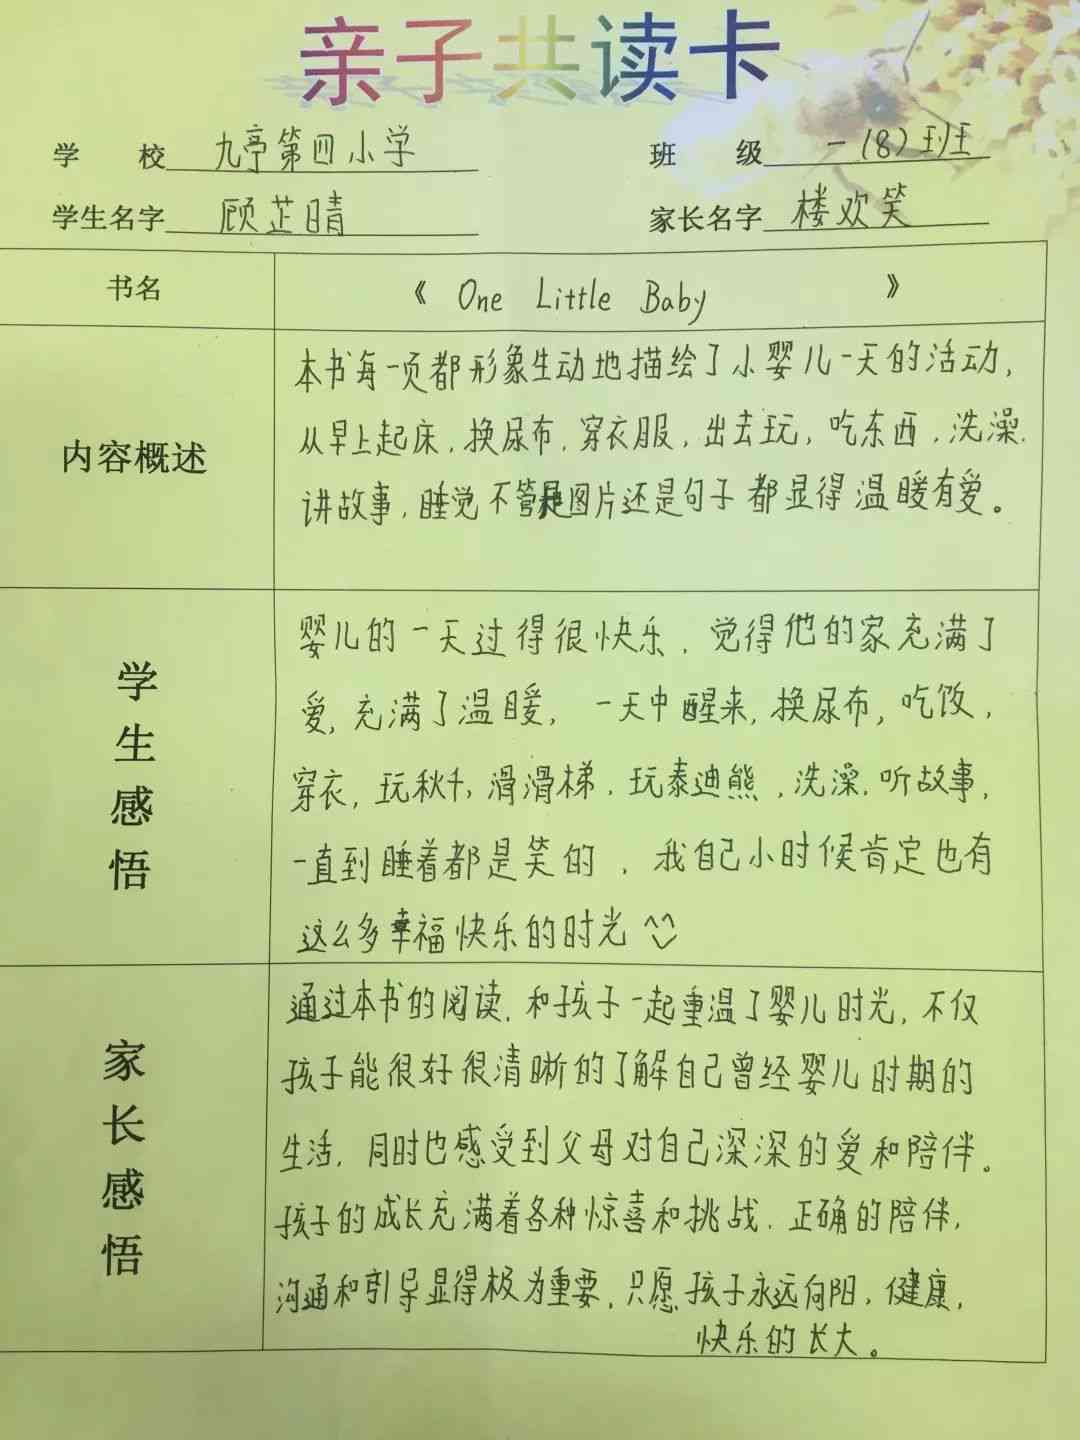 亲子共读卡
学 校 九亭第四小学 班 级 一(8)班
学生名字 顾芷晴 家长名字 楼欢笑
书名 《 One Little Baby 》
内容概述
本书每一页都形象生动地描绘了小婴儿一天的活动,
从早上起床,换尿布,穿衣服,出去玩,吃东西,洗澡,
讲故事,睡觉不管是图片还是句子都显得温暖有爱。
学生感悟
婴儿的一天过得很快乐,觉得他的家充满了
爱,充满了温暖,一天中醒来,换尿布,吃饭,
穿衣,玩秋千,滑滑梯,玩泰迪熊,洗澡,听故事,
一直到睡着都是笑的,我自己小时候肯定也有
这么多幸福快乐的时光^^
家长感悟
通过本书的阅读,和孩子一起重温了婴儿时光,不仅
孩子能很好很清晰的了解自己曾经婴儿时期的
生活,同时也感受到父母对自己深深的爱和陪伴。
孩子的成长充满着各种惊喜和挑战,正确的陪伴,
沟通和引导显得极为重要,只愿孩子永远向阳,健康,
快乐的长大。